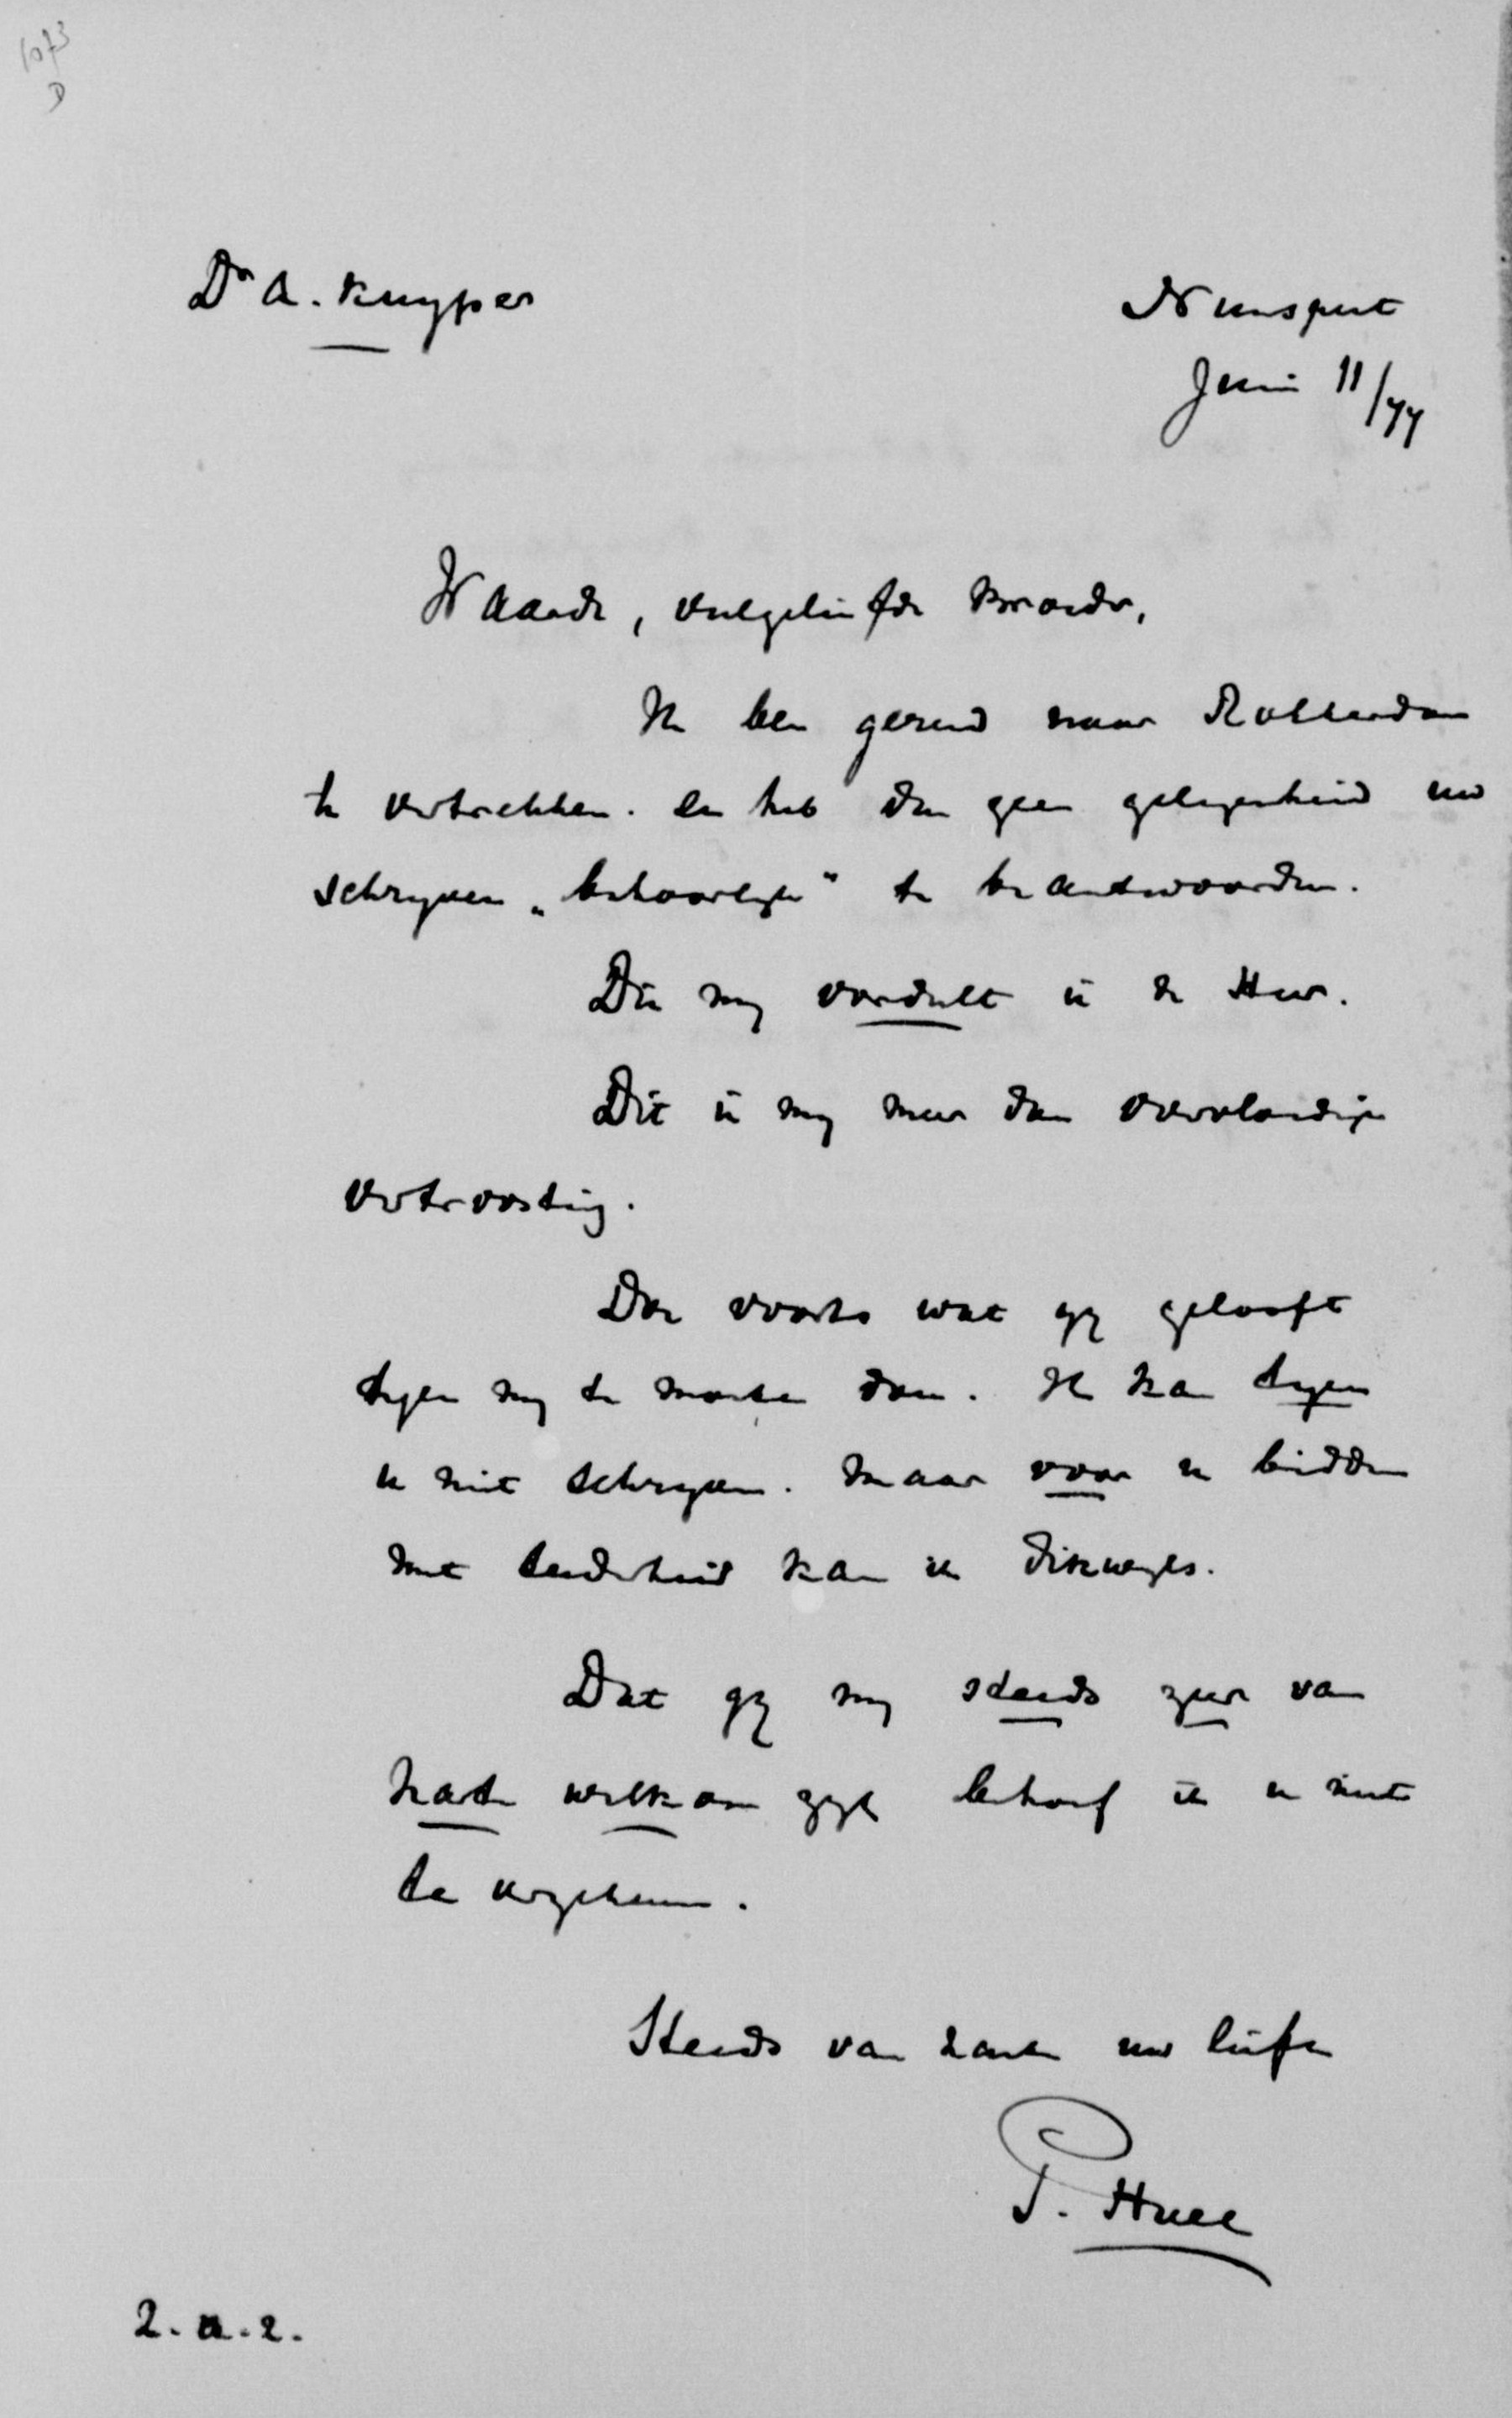 1073
D
Dr A. Kuyper
Nunspeet
Juni 11/77
Waarde, veelgeliefde Broeder,
Ik ben gereed naar Rotterdam
te vertrekken. En heb dus geen gelegenheid uw
schryven „behoorlyk" te beantwoorden.
Die my oordeelt is de Heer.
Dit is my meer dan overvloedige
vertroosting.
Doe voorts wat gy gelooft
tegen my te moeten doen. Ik kan tegen
u niet schryven. Maar voor u bidden
met teederheid kan ik dikwyls.
Dat gy my steeds zeer van
harte welkom zyt behoef ik u niet
te verzekeren.
Steeds van harte uw liefh
P. Huet